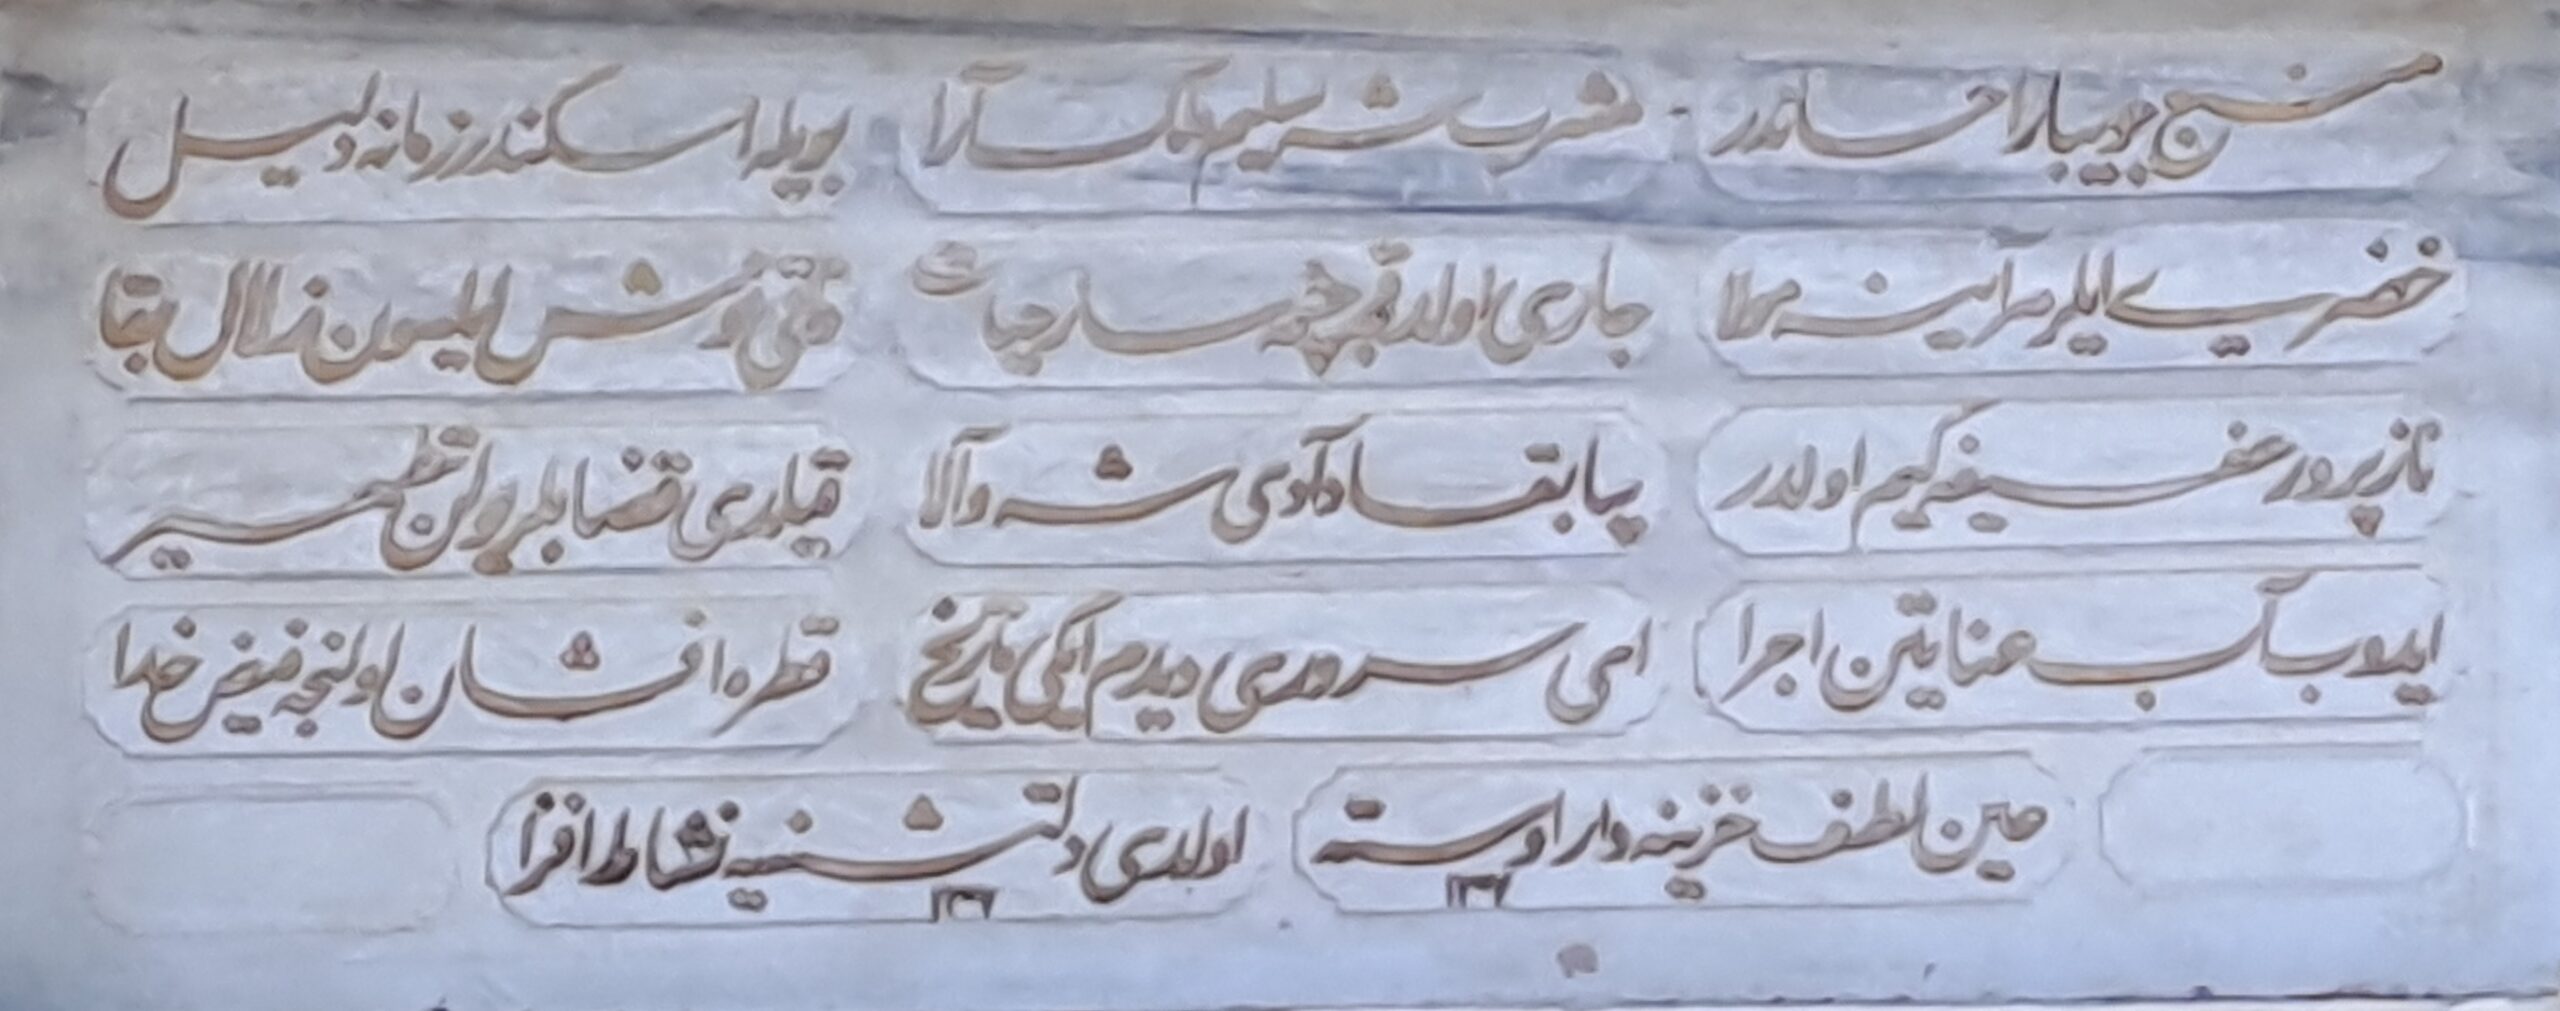 منبع جویبار احساندر مشرب شه سلیم ملک آرا بویله اسکندر زمانه دلیل
خضر پی ایلر هر آیینه مولا جاری اولدقجه چشمه سار حیات نوش ایلیسون زلال بقا
نازپرور عفیفه کیم اولدر پیا بقا دادی شه والا قیلدی قضا بلر بولن نظیر
ایدوب آب عنایتن اجرا ای سروری دیدم ایکی تاریخ قطره افشان اولنجه فیض خدا
عین لطف خزینه دار اوسته اولدی دلتشنه یه نشاط افزا